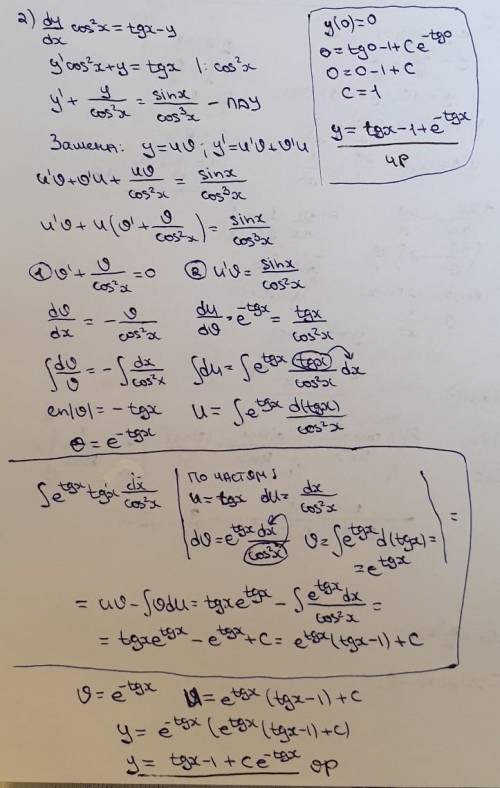 2) dy/dx cos²x = tgx - y
y'cos²x + y = tgx |: cos²x
y' + y/cos²x = sinx/cos³x - ЛДУ
Замена: y = uϑ; y' = u'ϑ + ϑ'u
u'ϑ + ϑ'u + uϑ/cos²x = sinx/cos³x
u'ϑ + u(ϑ' + ϑ/cos²x) = sinx/cos³x
① ϑ' + ϑ/cos²x = 0 ② u'ϑ = sinx/cos³x
dϑ/dx = - ϑ/cos²x du/dϑ · e^-tgx = tgx/cos²x
∫dϑ/ϑ = -∫dx/cos²x ∫du = ∫e^tgx tgx/cos²x dx
ln|ϑ| = - tgx u = ∫e^tgx d(tgx)/cos²x
ϑ = e^-tgx
y(0) = 0
0 = tg0 - 1 + Ce^-tg0
0 = 0 - 1 + C
C = 1
y = tgx - 1 + e^-tgx
чр
∫e^tgx tgx dx/cos²x | по частям:
u = tgx du = dx/cos²x
dϑ = e^tgx dx/cos²x ϑ = ∫e^tgx d(tgx) =
= e^tgx | =
= uϑ - ∫ϑdu = tgxe^tgx - ∫e^tgx dx/cos²x =
= tgxe^tgx - e^tgx + C = e^tgx(tgx-1) + C
ϑ = e^-tgx u = e^tgx(tgx-1) + C
y = e^-tgx(e^tgx(tgx-1) + C)
y = tgx - 1 + Ce^-tgx ор